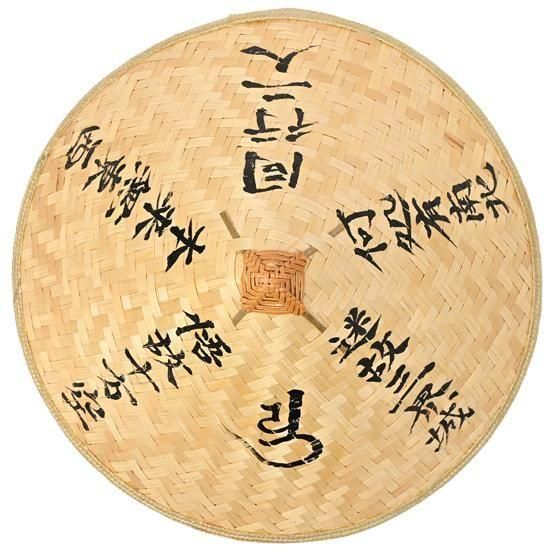 同行二人
迷故三界城
悟故十方空
本来無東西
何処有南北